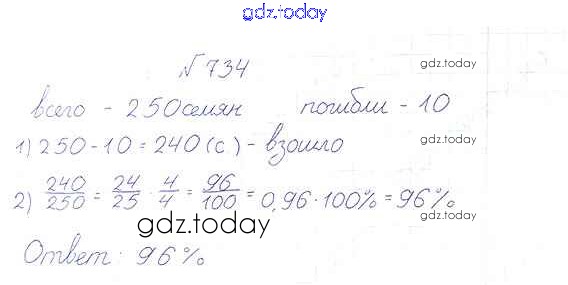 gdz.today
№734
gdz.today
всего - 250 семян погибли - 10
1) 250 - 10 = 240 (с.) - взошло
gdz.today
2) 240/250 = 24/25 · 4/4 = 96/100 = 0,96 · 100% = 96%
gdz.today
gdz.today
Ответ: 96%